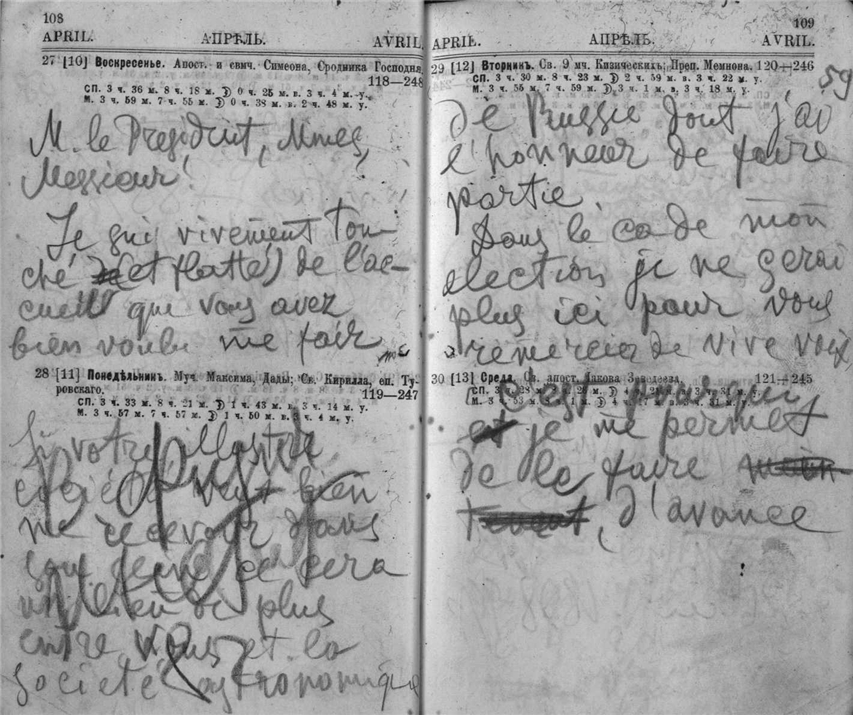 108
APRIL. АПРѢЛЬ. AVRIL.
27 [10] Воскресенье. Апост. и свмч. Симеона, Сродника Господня.
118—248
СП. 3 ч. 36 м. 8 ч. 18 м. ☽ 0 ч. 25 м. в. 3 ч. 4 м. у.
М. 3 ч. 59 м. 7 ч. 55 м. ☽ 0 ч. 38 м. в. 2 ч. 48 м. у.
M. le President, Mmes,
Messieurs!
Je suis vivement tou-
ché (et flatté) de l'ac-
cueil que vous avez
bien voulu me fair
28 [11] Понедѣльникъ. Муч. Максима, Дады; Св. Кирилла, еп. Ту-
ровскаго.
119—247
СП. 3 ч. 33 м. 8 ч. 21 м. ☽ 1 ч. 43 м. в. 3 ч. 14 м. у.
М. 3 ч. 57 м. 7 ч. 57 м. ☽ 1 ч. 50 м. в. 3 ч. 4 м. у.
Si votre illustre
société veut bien
me recevoir dans
son sein ce sera
un lien de plus
entre vous et la
Société astronomique
109
APRIL. АПРѢЛЬ. AVRIL.
29 [12] Вторникъ. Св. 9 мч. Кизическихъ; Преп. Мемнона. 120—246
59
СП. 3 ч. 30 м. 8 ч. 23 м. ☽ 2 ч. 59 м. в. 3 ч. 22 м. у.
М. 3 ч. 55 м. 7 ч. 59 м. ☽ 3 ч. 1 м. в. 3 ч. 18 м. у.
de Russie dont j'ai
l'honneur de faire
partie.
Dans le cas de mon
election je ne serai
plus ici pour vous
remercier de vive voix
30 [13] Среда. Св. апост. Іакова Зеведеева. 121—245
c'est pourquoi
et je me permet
de le faire
d'avance